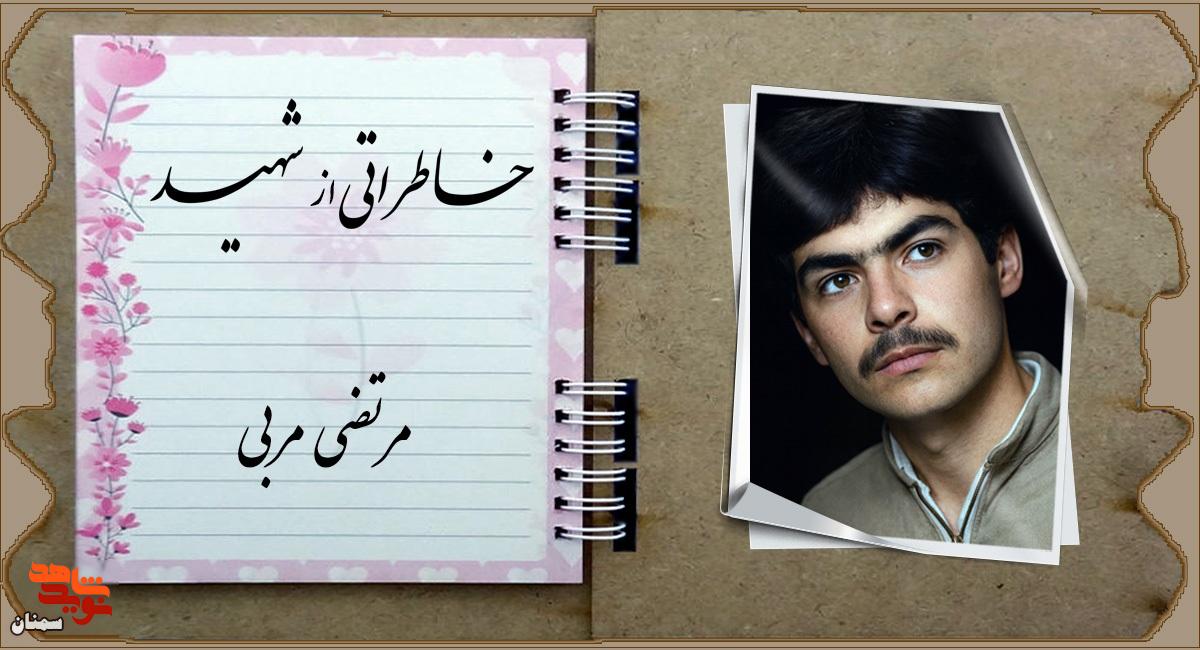 خاطراتی از شهید
مرتضی مربی
نوید شاهد
سمنان